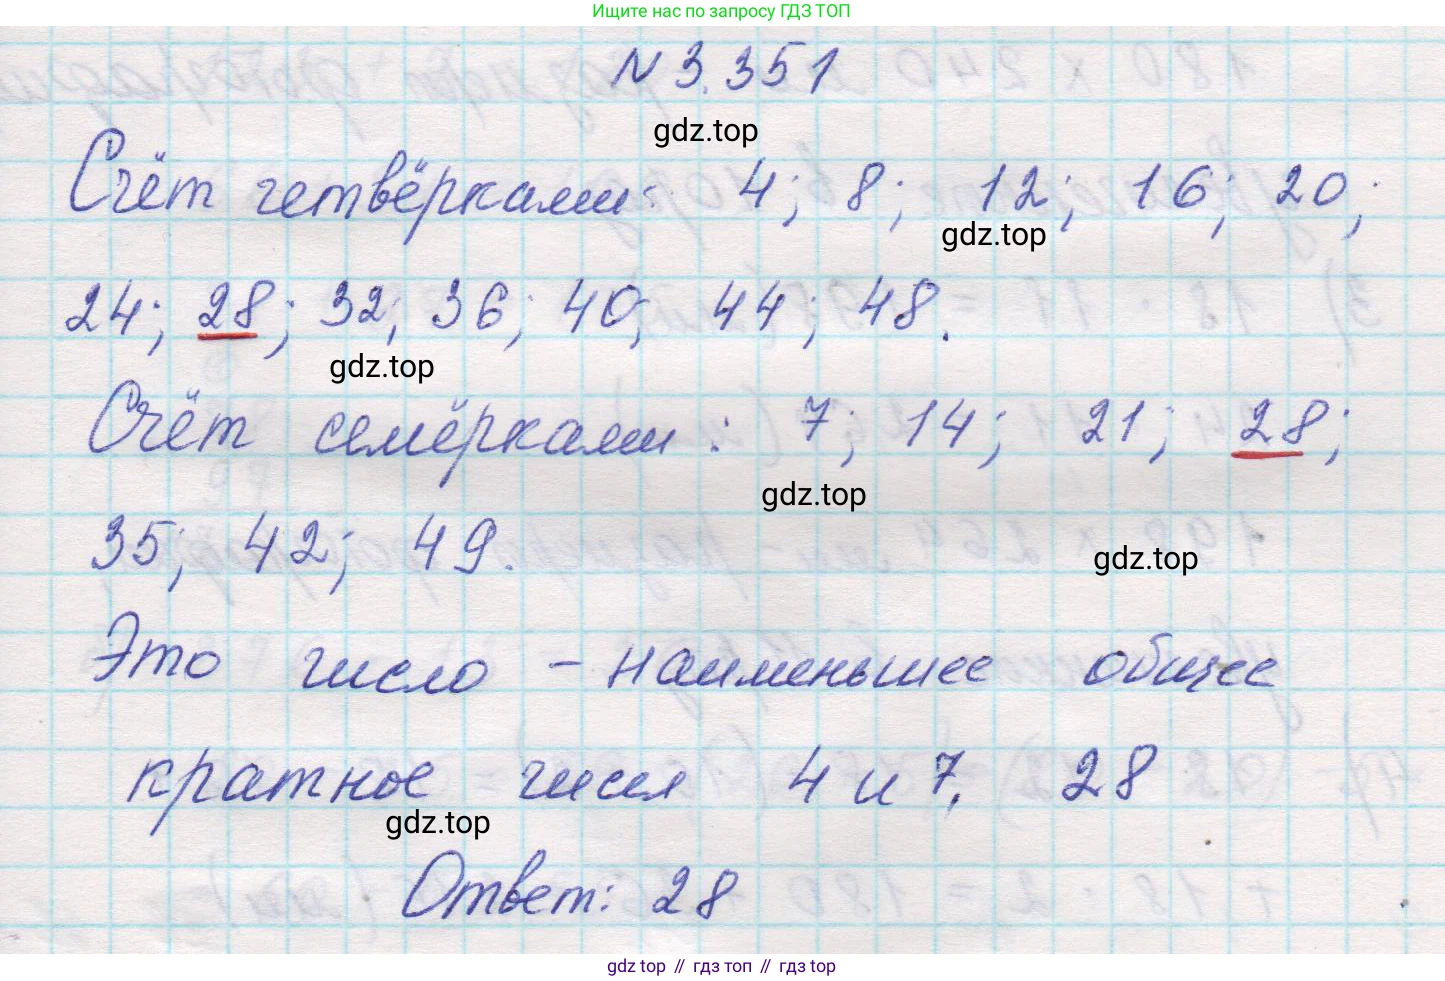 Ищите нас по запросу ГДЗ ТОП
N 3.351
gdz.top
Счёт четвёрками: 4; 8; 12; 16; 20;
gdz.top
24; 28; 32; 36; 40; 44; 48.
gdz.top
Счёт семёрками: 7; 14; 21; 28;
gdz.top
35; 42; 49.
gdz.top
Это число - наименьшее общее
кратное чисел 4 и 7. 28
gdz.top
Ответ: 28
gdz top // гдз топ // гдз top